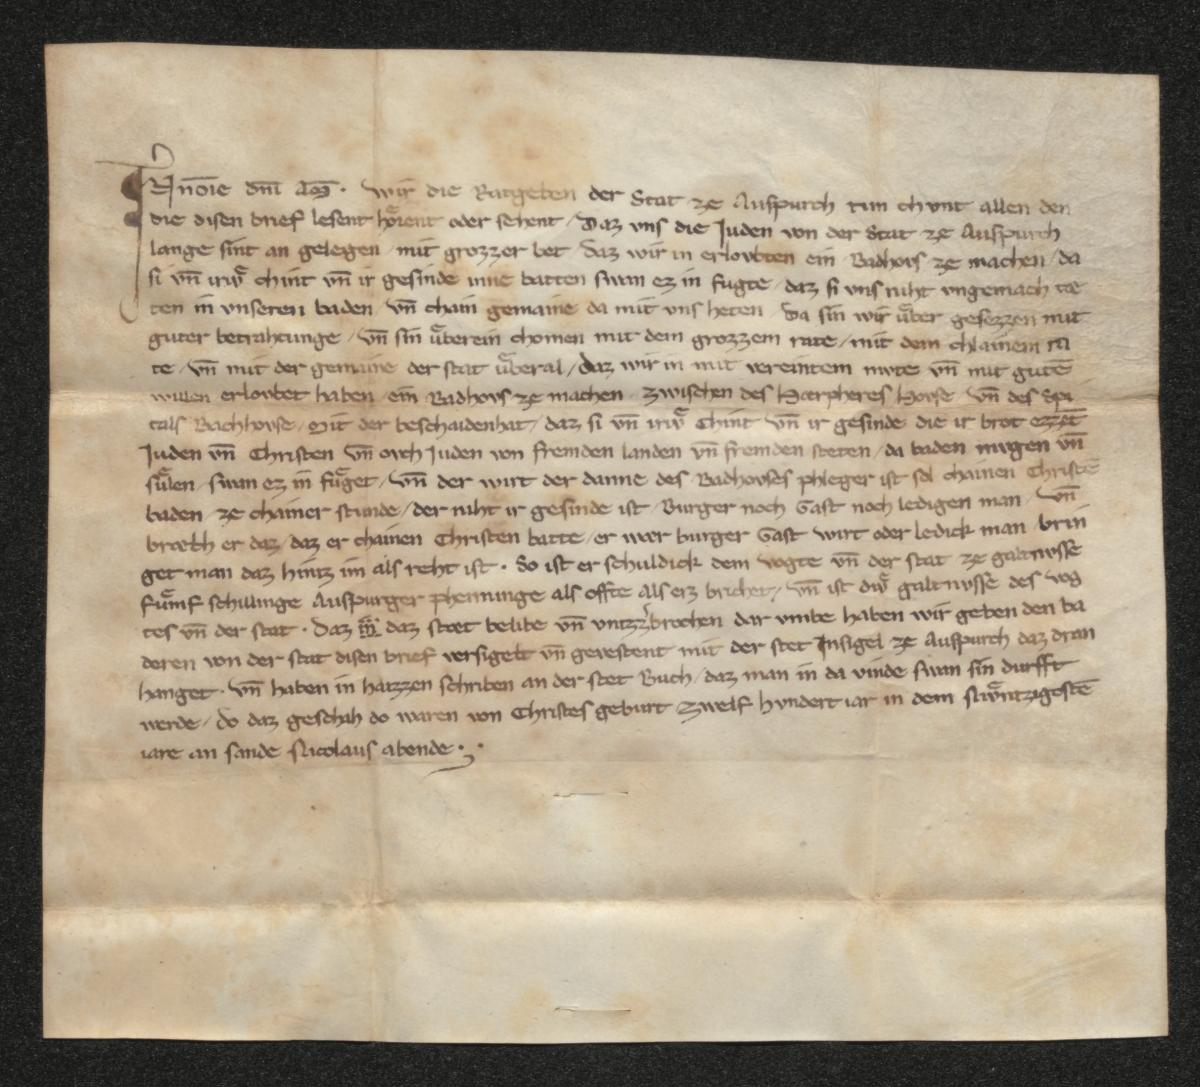 IN no̅ie dni̅ am̅. Wir die Ratgeben der Stat ze Auspurch tun chunt allen den
die disen brief lesent hoͤrent oder sehent / Daz uns die Juden von der Stat ze Auspurch
lange sint an gelegen / mit grozzer bet / Daz wir in erlovbten ein / Badhovs ze machen / da
si vn̅ irív chint vn̅ ir gesinde inne batten swan ez in fugte / daz si uns niht ungemach tæ
ten in unseren baden / vn̅ chain gemaine da mit uns heten / Da sin wir uͤber gesezzen mit
guter betrahtunge / vn̅ sin uͤberein chomen mit dem grozzem rate / mit dem chlainem ra
te / vn̅ mit der gemaine der stat uͤberal / Daz wir in mit vereintem mute vn̅ mit gute̅
willen erlovbet haben / ein Badhovs ze machen / zwischen des Hærpheres Hovse / vn̅ des Spi
tals Bachhovse / Mit der beschaidenhat / daz si vn̅ irív Chint vn̅ ir gesinde die ir brot ezze̅t
Juden vn̅ Christen vn̅ ovch Juden von fremden landen vn̅ fremden steten / da baden mugen vn̅
suͤlen / swan ez in fuͤget / vn̅ der wirt der danne des Badhovses phleger ist sol chainen Christe̅
baden / ze chainer stunde / der niht ir gesinde ist / Burger noch Gast noch ledigen man / vn̅
bræch er daz / daz er chainen Christen batte / er wær burger Gast wirt oder ledick man / brin
get man daz hintz im als reht ist . So ist er schuldick dem vogte vn̅ der stat ze galtnusse
fuͤmf schillinge Auspurger phenninge als offte als erz brichet / vn̅ ist div galtnusse des vog
tes vn̅ der stat . Daz in daz stæt belibe vn̅ untzzerbrochen dar umbe haben wir geben den ba
deren von der stat disen brief versigelt vn̅ gevestent mit der stet Insigel ze Auspurch daz dran
hanget . vn̅ haben in hazzen schriben an der stet Buch / daz man in da vinde swan sin durfft
werde / do daz geschah do waren von Christes geburt zwelf hundert iar in dem Niuntzigeste̅
iare an sande Nicolaus abende .